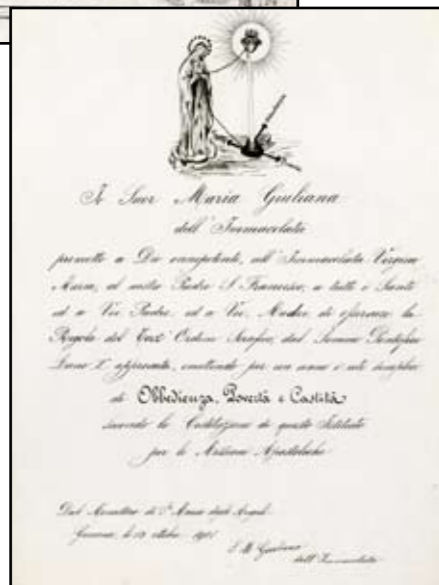 Io Suor Maria Giuliana
dell' Immacolata
prometto a Dio onnipotente, all' Immacolata Vergine
Maria, al nostro Padre S. Francesco, a tutti i Santi
ed a Voi Padre, ed a Voi, Madre, di osservare la
Regola del Terz' Ordine Serafico, dal Sommo Pontefice
Leone X approvata, emettendo per un anno i voti semplici
di Obbedienza, Povertà e Castità
secondo le Costituzioni di questo Istituto
per le Missioni Apostoliche
Dal Monastero di Sa Maria degli Angeli
Gemona, li ottobre
S. M. Giuliana
dell' Immacolata